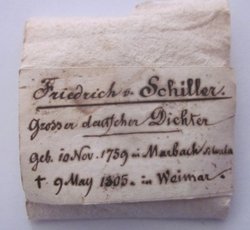 Friedrich v. Schiller.
Grosser deutscher Dichter
geb. 10 Nov. 1759 in Marbach
† 9 May 1805. in Weimar.